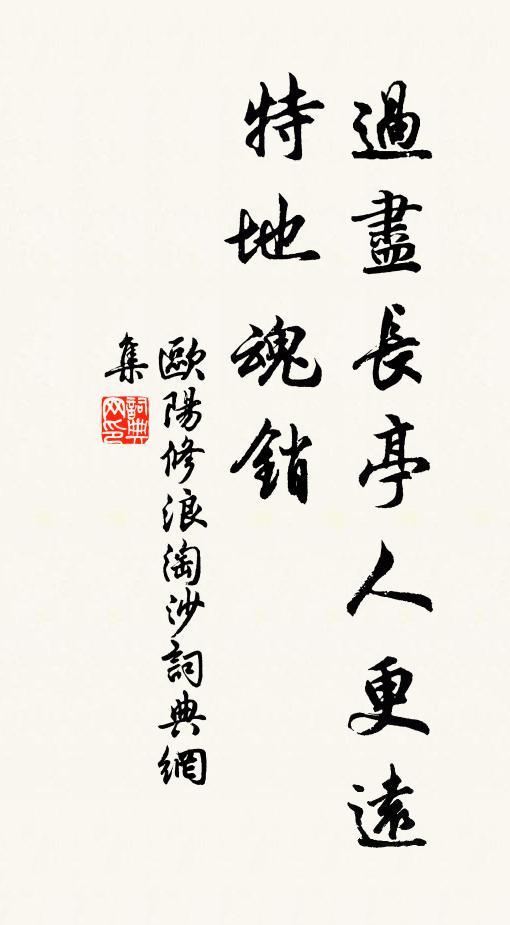 過盡長亭人更遠
特地魂銷
歐陽修浪淘沙詞典網
集
詞典网印